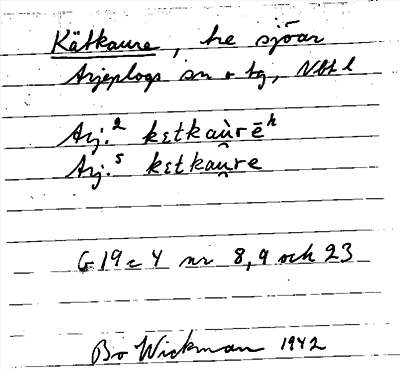 Kätkaure, tre sjöar
Arjeplogs sn o tg, Nbt l
Arj.² kɛtkaù̯rē^h
Arj.⁵ kɛtkau̯re
G 19 c 4 nr 8, 9 och 23
Bo Wickman 1942